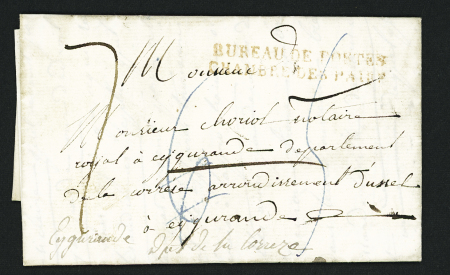 BUREAU DE POSTES
CHAMBRE DES PAIRS
Monsieur
Monsieur choriol notaire
royal à eygurande departement
de la correse arrondissement d'ussel
à eygurande
Eygurande Dpt de la Correze